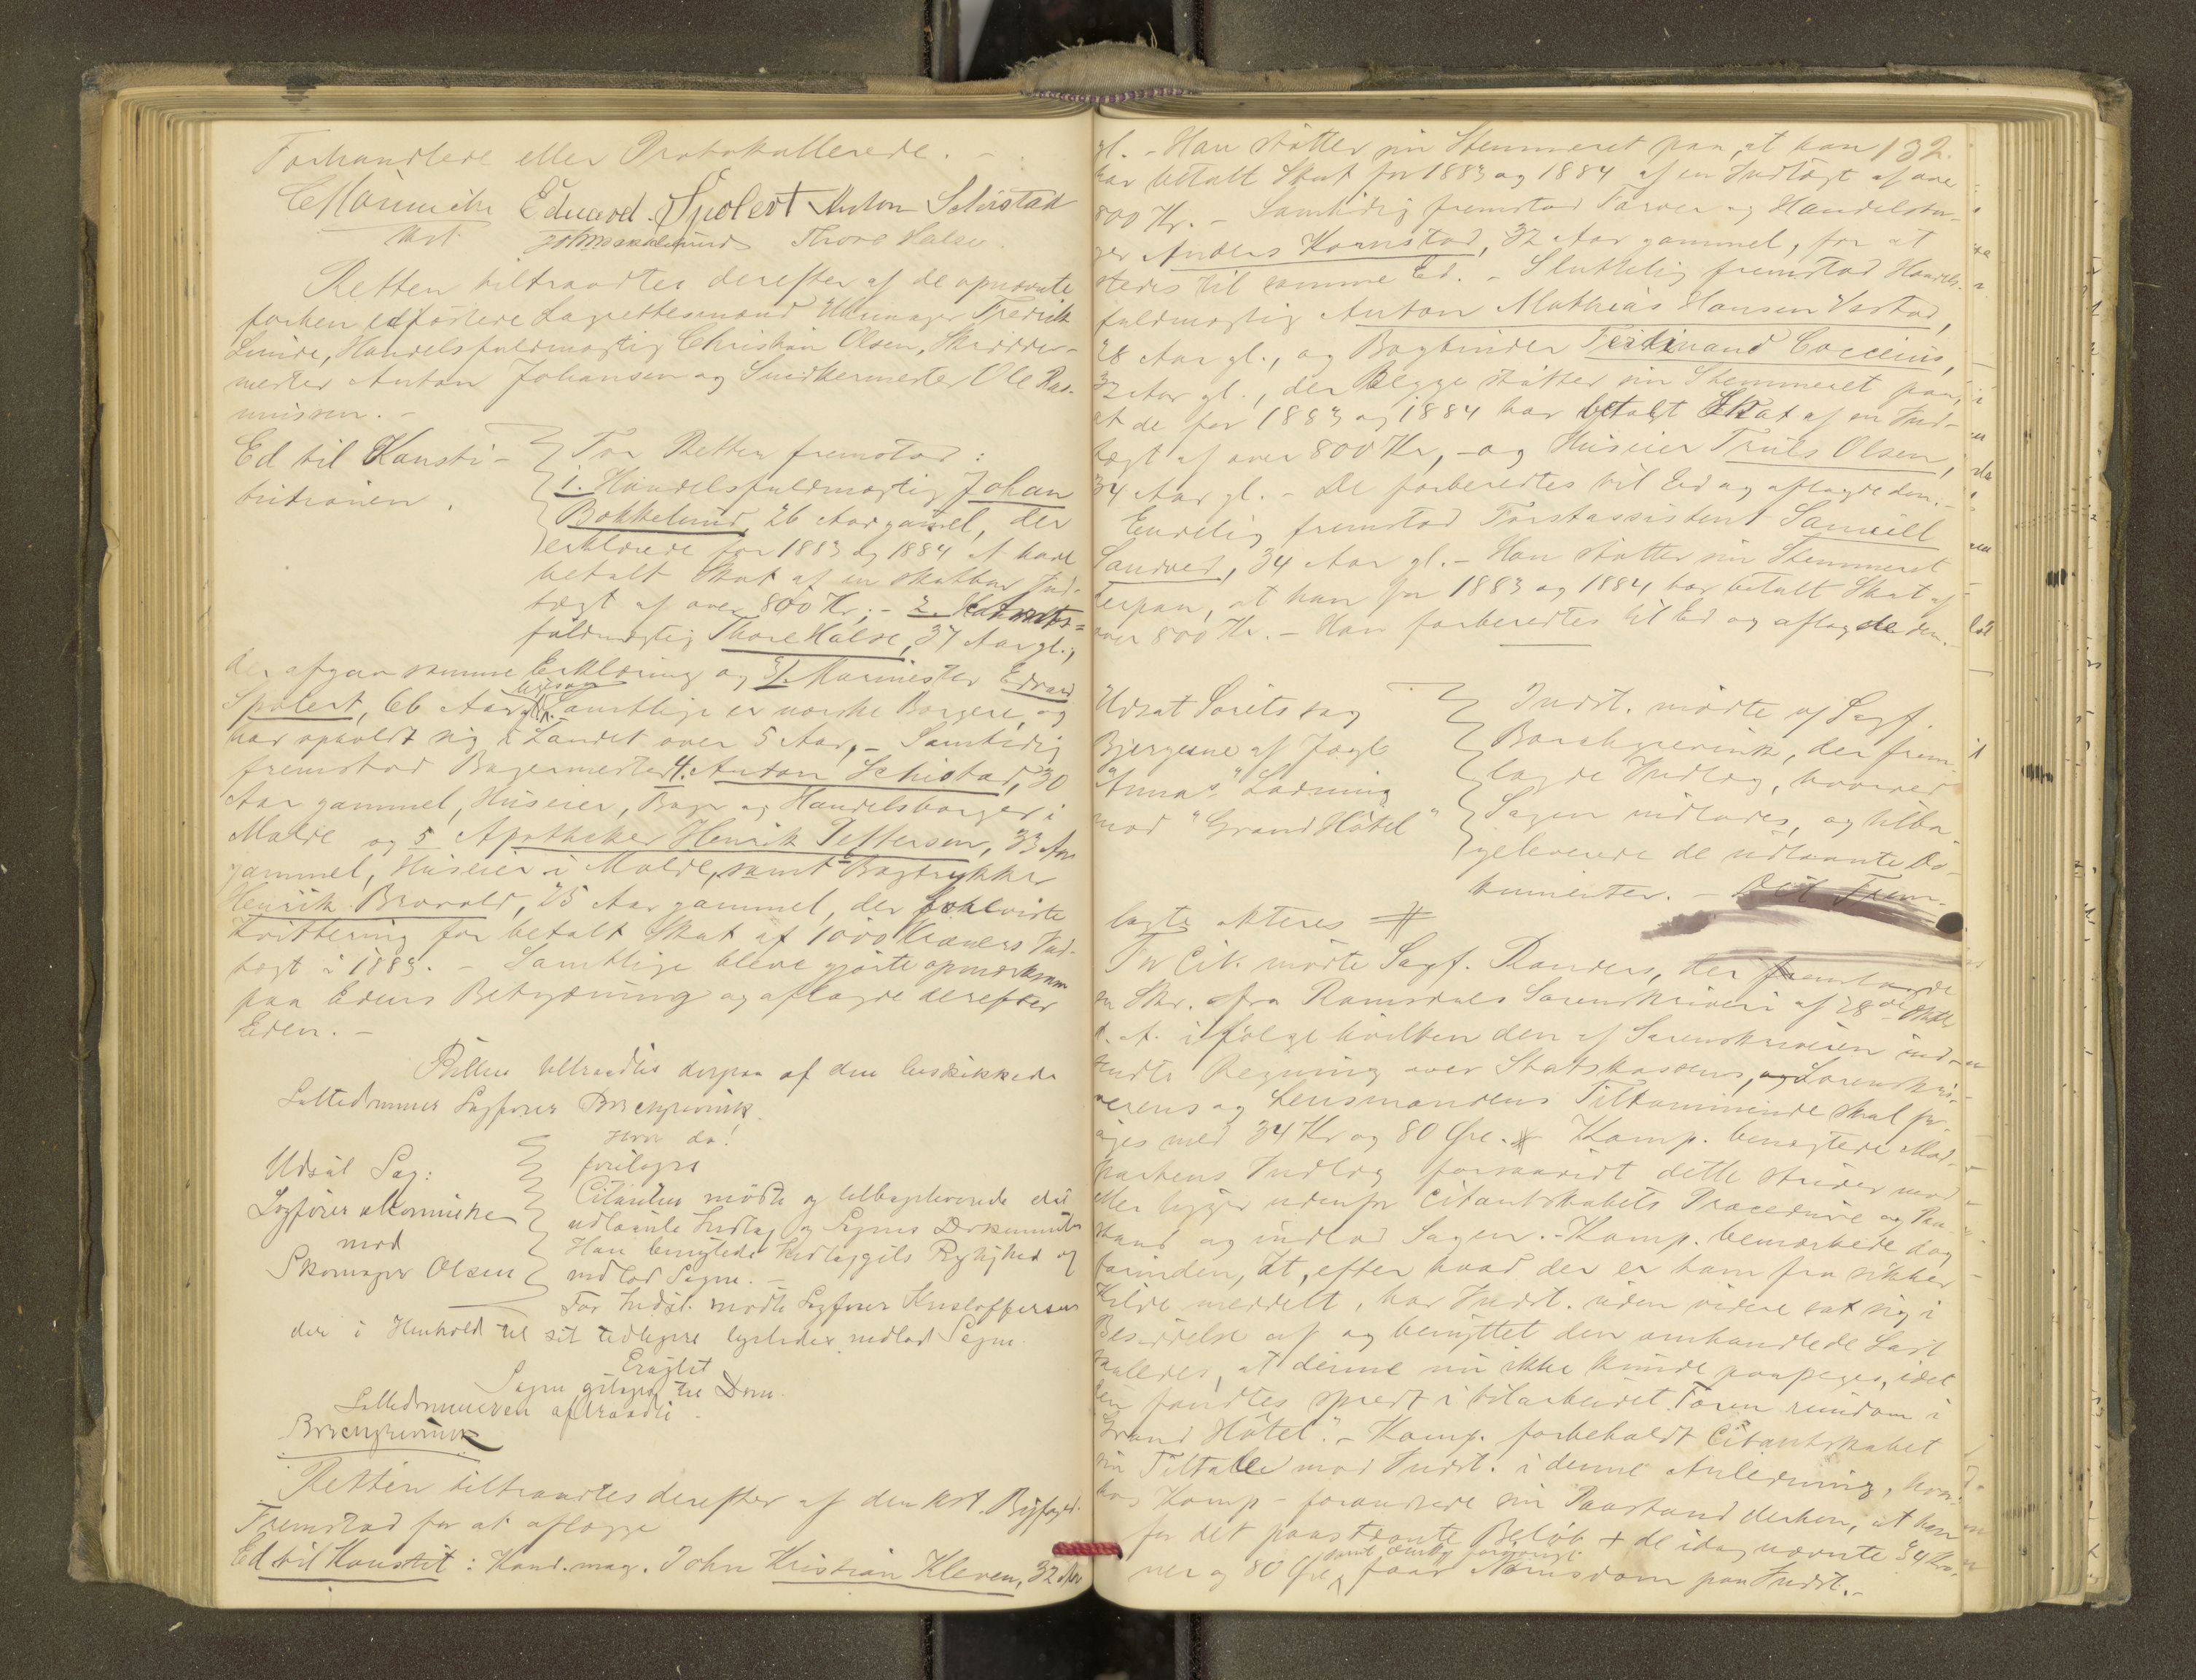 Forhandlede eller Protokollerede. -
Eduard Spolert Anton Schistad
kst. Thore Halse.
Retten tiltraadtes derefter af de opnævnte
forhen edfæstede Lagrettesmænd Uhrmager Fredrik
Linde, Handelsfuldmægtig Christian Olsen, Skrædder-
mester Anton Johansen og Snedkermester Ole Ras-
mussen. -
Ed til Konsti-
tutionen.
For Retten fremstod:
1. Handelsfuldmægtig Johan
Bokkelund, 26 Aar gammel, der
erklærede for 1883 og 1884 at have
betalt Skat af en skatbar Ind-
tægt af over 800 Kr; - 2.
fuldmægtig Thore Halse, 37 Aar gl.,
der afgav samme Erklæring og 3/. Murmester Edvard
Spolert, 66 Aar ligesaa Samtlige er norske Borgere, og
har opholdt sig i Landet over 5 Aar, - Samtidig
fremstod Bagermester 4. Anton Schistad, 30
Aar gammel, Huseier, Bager og Handelsborger i
Molde og 5 Apotheker Henrik Deffersen, 33 Aar
gammel, Huseier i Molde, samt Bogtrykker
Henrik Brovold, 25 Aar gammel, der foreviste
Kvittering for betalt Skat af 1000 Kroners Ind-
tægt i 1883. - Samtlige bleve gjorte opmærksom
paa Edens Betydning og aflagde derefter
Eden. -
Retten tiltraadtes derpaa af den beskikkede
Sættedommer Sagfører Borchgrevink.
Hvor da!
Udsat Sag:
Sagfører Mønniche
mod
Skomager Olsen
foretages
Citanten mødte og tilbageleverede det
udlaante Indlæg og Sagens Dokumenter
Han benegtede Indlæggets Rigtighed og
indlod Sagen. -
For Indst. mødte Sagfører Kristoffersen
der i Henhold til sit tidligere ligeledes indlod Sagen.
Eragtet
Sagen optages til Dom.
Sættedommeren aftraadte.
Borchgrevink
Retten tiltraadtes derefter af den kst. Byfoged.
Fremstod for at aflægge
Ed til Konstit: Kand. mag. John Kristian Kleven, 32 Aar
132.
gl. - Han støtter sin Stemmeret paa, at han
har betalt Skat for 1883 og 1884 af en Indtægt af over
800 Kr. - Samtidig fremstod Farver og Handelsbor-
ger Anders Kornstad, 32 Aar gammel, for at
stedes til samme Ed. - Sluttelig fremstod Handels-
fuldmægtig Anton Mathias Hansen Vestad,
28 Aar gl., og Bogbinder Ferdinand Cocceius,
32 Aar gl., der Begge støtter sin Stemmeret paa,
at de for 1883 og 1884 har betalt Skat af en Ind-
tægt af over 800 Kr, - og Huseier Truls Olsen,
34 Aar gl. - De forberedtes til Ed og aflagde den. -
Endelig fremstod Forstassistent Samuel
Sandved, 34 Aar gl. - Han støtter sin Stemmeret
derpaa, at han for 1883 og 1884 har betalt Skat af
over 800 Kr. - Han forberedtes til Ed og aflagde den. -
Udsat Sørets sag
Bjergerne af Jagt
"Annas" Ladning
mod "Grand Hôtel"
Indst. mødte ef Sagf.
Borchgrevink, der frem-
lagde Indlæg, hvorved
Sagen indlodes, og tilba-
geleverede de udlaante Do-
kumenter. - Det Frem-
lagte akteres #
For Cit. mødte Sagf. Randers, der fremlagde
en Skr. fra Romsdals Sorenskriveri af 28de Oktbr
d. A. ifølge hvilken den af Sorenskriveren ind-
sendte Regning over Statskassens, og Sorenskri-
verens og Lensmandens Tilkommende skal for-
øges med 34 Kr og 80 Øre. # Komp. benegtede Mod-
partens Indlæg forsaavidt dette strider mod
eller ligger udenfor Citantskabets Procedure og Paa-
stand og indlod Sagen. - Komp. bemærkede dog
forinden, at, efter hvad der er ham fra sikker
Kilde meddelt, har Indst. uden videre sat sig i
Besiddelse af og benyttet den omhandlede Last
saaledes, at denne nu ikke kunde paapeges, idet
den fandtes spredt i tilarbeidet Form rundom i
"Grand Hôtel". - Komp. forbeholdt Citantskabet
sin Tiltale mod Indst. i denne Anledning,
hos Komp - forandrede sin Paastand derhen, at han
for det paastaaante Beløb + de idag nævnte 34 Kro-
ner og 80 Øre faar Namsdom paa Indst. -